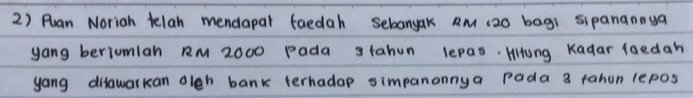 2) Puan Noriah telah mendapat faedah sebanyak RM 120 bagi sipananнya
yang berjumlah RM 2000 pada 3 tahun lepas. Hitung kadar faedah
yang ditawarkan oleh bank terhadap simpanannya pada 3 tahun lepas